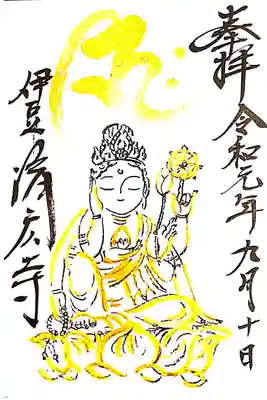 奉拝
令和元年九月十日
伊豆済広寺